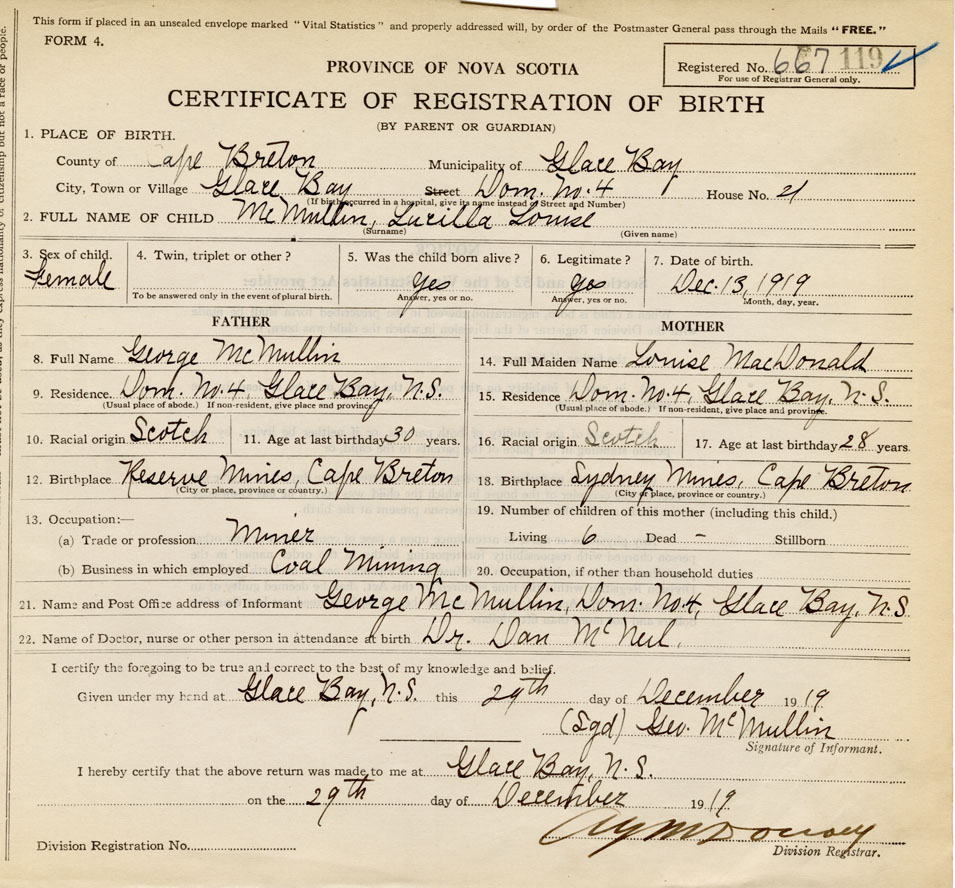 This form if placed in an unsealed envelope marked "Vital Statistics" and properly addressed will, by order of the Postmaster General pass through the Mails "FREE."
FORM 4.
Registered No. 667 119
For use of Registrar General only.
PROVINCE OF NOVA SCOTIA
CERTIFICATE OF REGISTRATION OF BIRTH
(BY PARENT OR GUARDIAN)
1. PLACE OF BIRTH.
County of Cape Breton Municipality of Glace Bay
City, Town or Village Glace Bay Street Dom. No. 4 House No. 21
(If birth occurred in a hospital, give its name instead of Street and Number)
2. FULL NAME OF CHILD McMullin, Lucilla Louise
(Surname) (Given name)
3. Sex of child. 4. Twin, triplet or other? 5. Was the child born alive? 6. Legitimate? 7. Date of birth.
Female Yes Yes Dec. 13, 1919
To be answered only in the event of plural birth. Answer, yes or no. Answer, yes or no. Month, day, year.
FATHER MOTHER
8. Full Name George McMullin 14. Full Maiden Name Louise MacDonald
9. Residence. Dom. No. 4, Glace Bay, N.S. 15. Residence Dom. No. 4, Glace Bay, N.S.
(Usual place of abode.) If non-resident, give place and province. (Usual place of abode.) If non-resident, give place and province.
10. Racial origin Scotch 11. Age at last birthday 30 years. 16. Racial origin Scotch 17. Age at last birthday 28 years.
12. Birthplace Reserve Mines, Cape Breton 18. Birthplace Sydney Mines, Cape Breton
(City or place, province or country.) (City or place, province or country.)
13. Occupation:— 19. Number of children of this mother (including this child.)
(a) Trade or profession Miner Living 6 Dead - Stillborn
(b) Business in which employed Coal Mining 20. Occupation, if other than household duties
21. Name and Post Office address of Informant George McMullin, Dom. No. 4, Glace Bay, N.S
22. Name of Doctor, nurse or other person in attendance at birth Dr. Dan McNeil.
I certify the foregoing to be true and correct to the best of my knowledge and belief.
Given under my hand at Glace Bay, N.S. this 29th day of December 1919
(Sgd) Geo. McMullin
Signature of Informant.
I hereby certify that the above return was made to me at Glace Bay, N.S.
on the 29th day of December 1919
Division Registration No. Division Registrar.